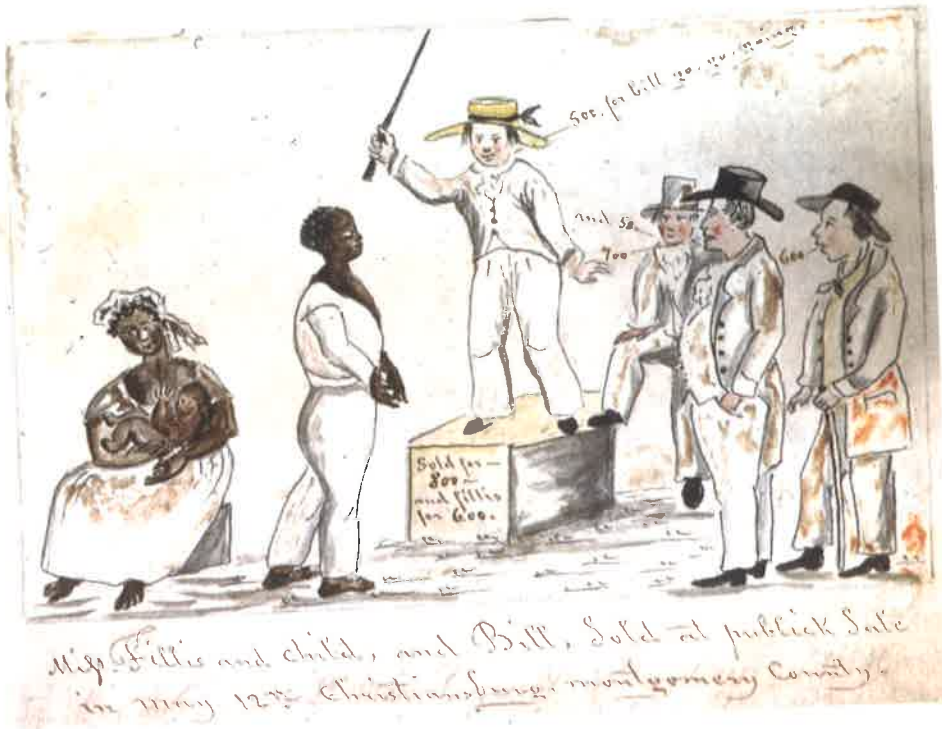 500. for bill go. go. going.
and 50
700
600
Sold for —
800 —
and fillis
for 600.
Miss Fillis and child, and Bill, Sold at publick Sale
in may 12th Christiansburg, montgomery County.